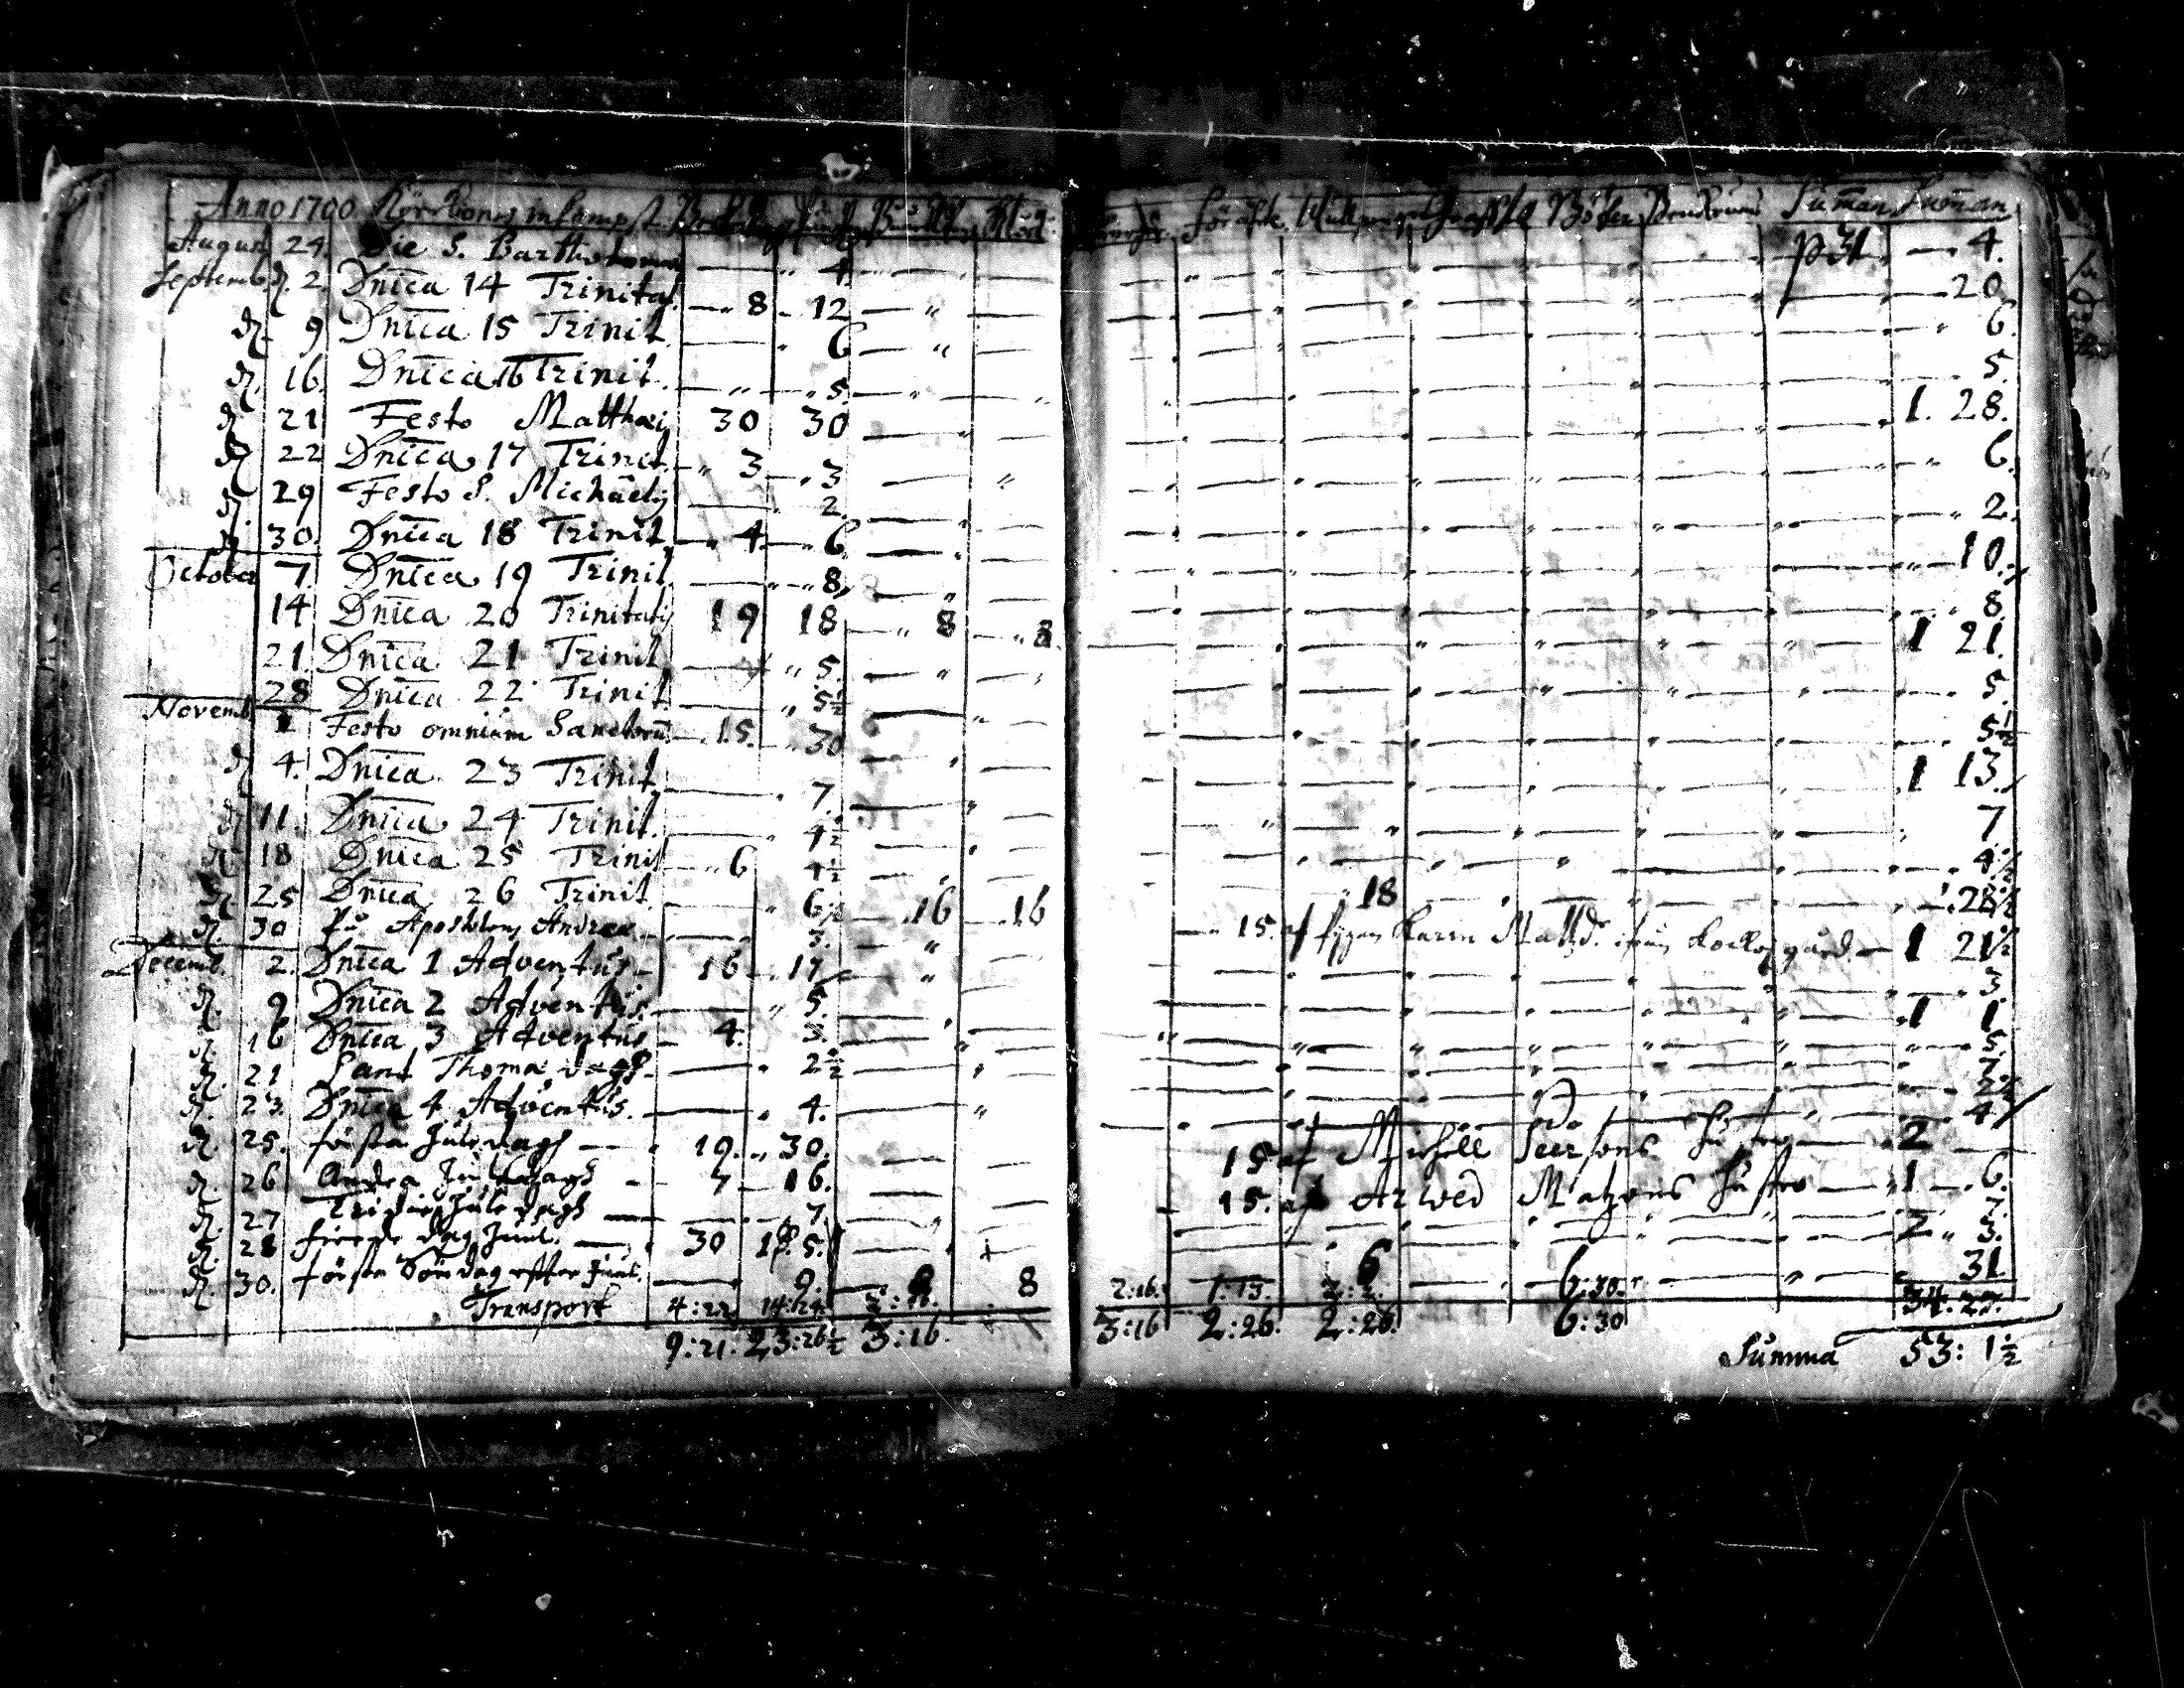 Anno 1700
August 24. Die S. Bartholomæi 4. p 31 4.
Septemb. d. 2. Dnica 14 Trinitat. 8 12 20
d. 9 Dnica 15 Trinit. 6 6.
d. 16. Dnica 16 Trinit. 5. 5.
d. 21 Festo Matthæi 30 30 1. 28.
d. 22 Dnica 17 Trinit. 3 3 6.
d. 29 Festo S. Michaelis 2. 2.
d. 30. Dnica 18 Trinit. 4 6 10.
October 7. Dnica 19 Trinit. 8 8
14 Dnica 20 Trinitatis 19 18 8 8. 1 21.
21. Dnica 21 Trinit. 5. 5.
28 Dnica 22 Trinit 5½ 5½
Novemb. 1 Festo omnium Sanctorū 15. 30 1 13.
d. 4. Dnica 23 Trinit. 7. 7
d. 11. Dnica 24 Trinit. 4½ 4½
d. 18 Dnica 25 Trinit 6 4½ 18 28½
d. 25 Dnica 26 Trinit. 6½ 16 16 15. af Karin Matzd. 1 21½
d. 30 Apostelens Andreæ 3. 3.
Decemb. 2. Dnica 1 Adventus 16 17 1 1
d. 9 Dnica 2 Adventus. 5. 5.
d. 16 Dnica 3 Adventus 4. 3. 7.
d. 21 Sant Thomæ dagh 2½ 2½
d. 23. Dnica 4 Adventus. 4. 4
d. 25. första Juledagh 19. 30. 15 af Michell Peersons hustro 2
d. 26 Andra Juledagh 7 16. 15. af Arwed Matzons hustro 1 6.
d. 27 Tridie Jule dagh 7 7.
d. 28 fierde dag Juul. 30 5. 2 3.
d. 30. första Söndag efter Juul. 9. 8 8 6 31
Transport 4:22. 14:24. 2:16. 1:13. 2:2. 6:30. 34:27.
9:21. 23:26½ 3:16. 3:16 2:26. 2:26. 6:30 Summa 53: 1½